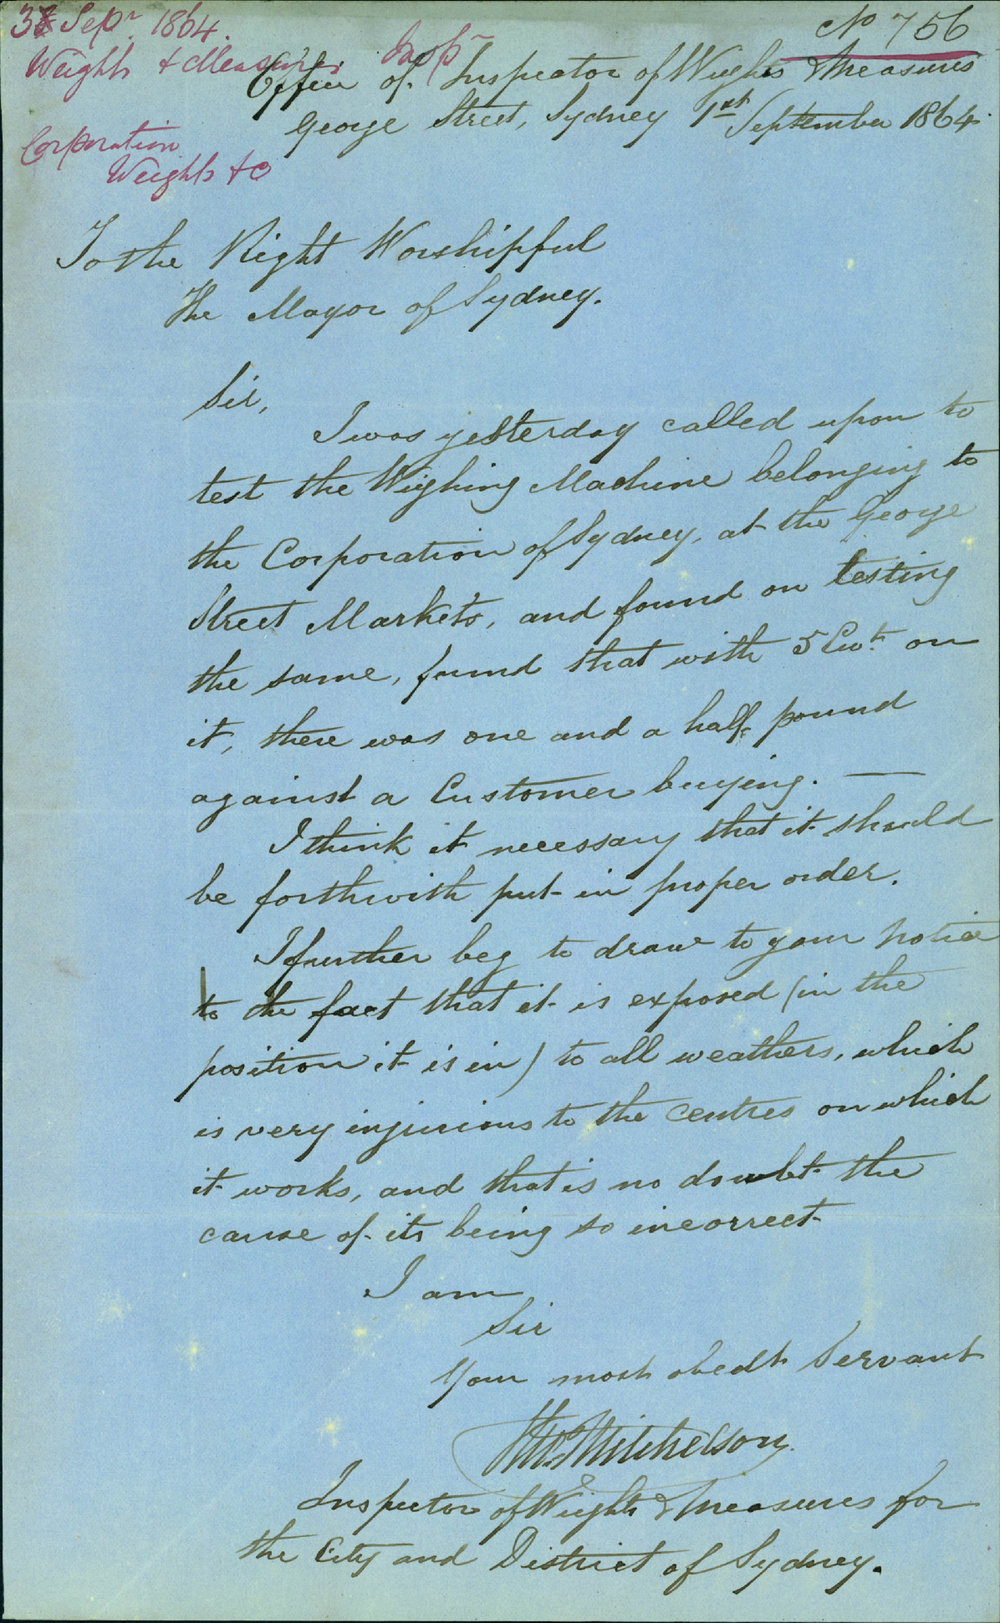 Sepr. 1864.
No 756
Weights & Measures Inspr
Office of Inspector of Weights & Measures
George Street, Sydney 1st September 1864.
Corporation
Weights &c
To the Right Worshipful
The Mayor of Sydney.
Sir,
I was yesterday called upon to
test the Weighing Machine belonging to
the Corporation of Sydney, at the George
Street Markets, and found on testing
the same, found that with 5 Cwt. on
it, there was one and a half pound
against a Customer buying. —
I think it necessary that it should
be forthwith put in proper order.
I further beg to draw to your notice
to the fact that it is exposed (in the
position it is in) to all weathers, which
is very injurious to the centres on which
it works, and that is no doubt the
cause of its being so incorrect.
I am
Sir
Your most obedt Servant
Mitchelson
Inspector of Weights & Measures for
the City and District of Sydney.